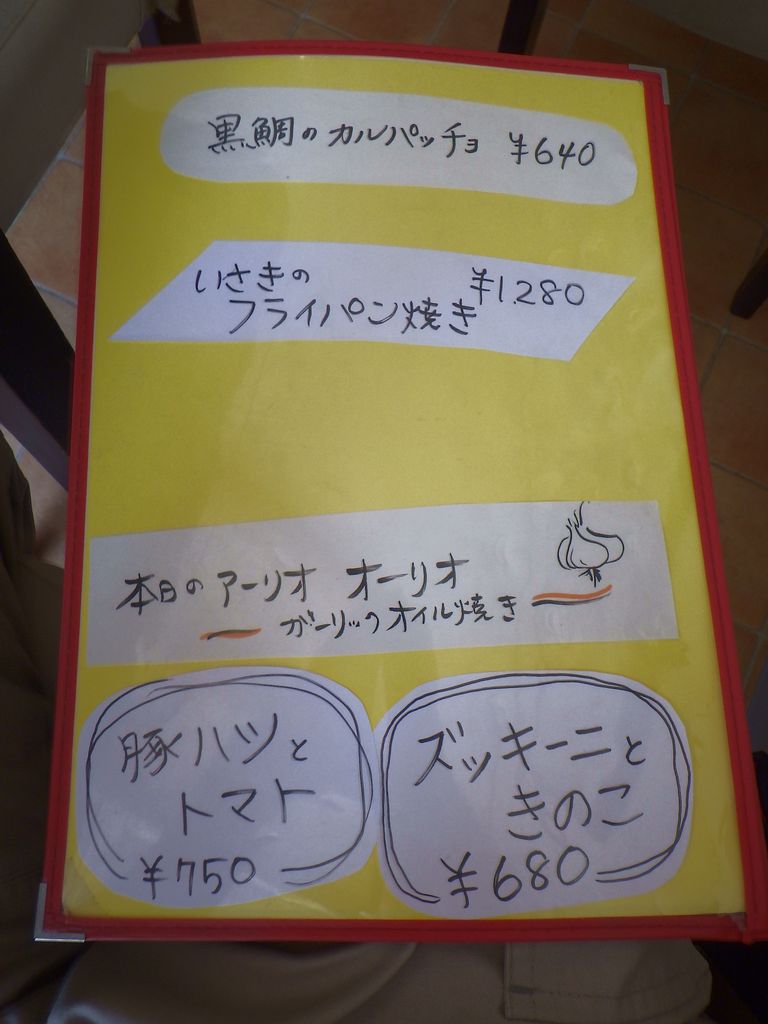 黒鯛のカルパッチョ ¥640
いさきの ¥1.280
フライパン焼き
本日のアーリオ オーリオ
ガーリックオイル焼き
豚ハツと
トマト
¥750
ズッキーニと
きのこ
¥680